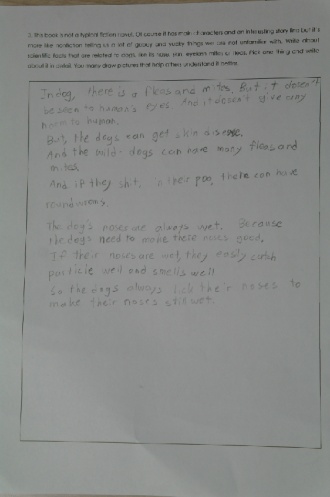 2. This book is not a typical fiction novel. Of course it has main characters and an interesting story line but it's
more like nonfiction telling us a lot of grossy and yucky things we are not unfamiliar with. Write about
scientific facts that are related to dogs, like its nose, poo, eyeball mites or fleas. Pick one thing and write
about it in detail. You may draw pictures that help others understand it better.
In dog, there is a fleas and mites. But it doesn't
be seen to human's eyes. And it doesn't give many
harm to human.
But, the dogs can get skin disease.
And the wild dogs can have many fleas and
mites.
And if they shit, in their poo, there can have
roundworms.
The dog's noses are always wet. Because
the dogs need to make there noses good,
If their noses are wet, they easily catch
particle well and smells well
So the dogs always lick their noses to
make their noses still wet.